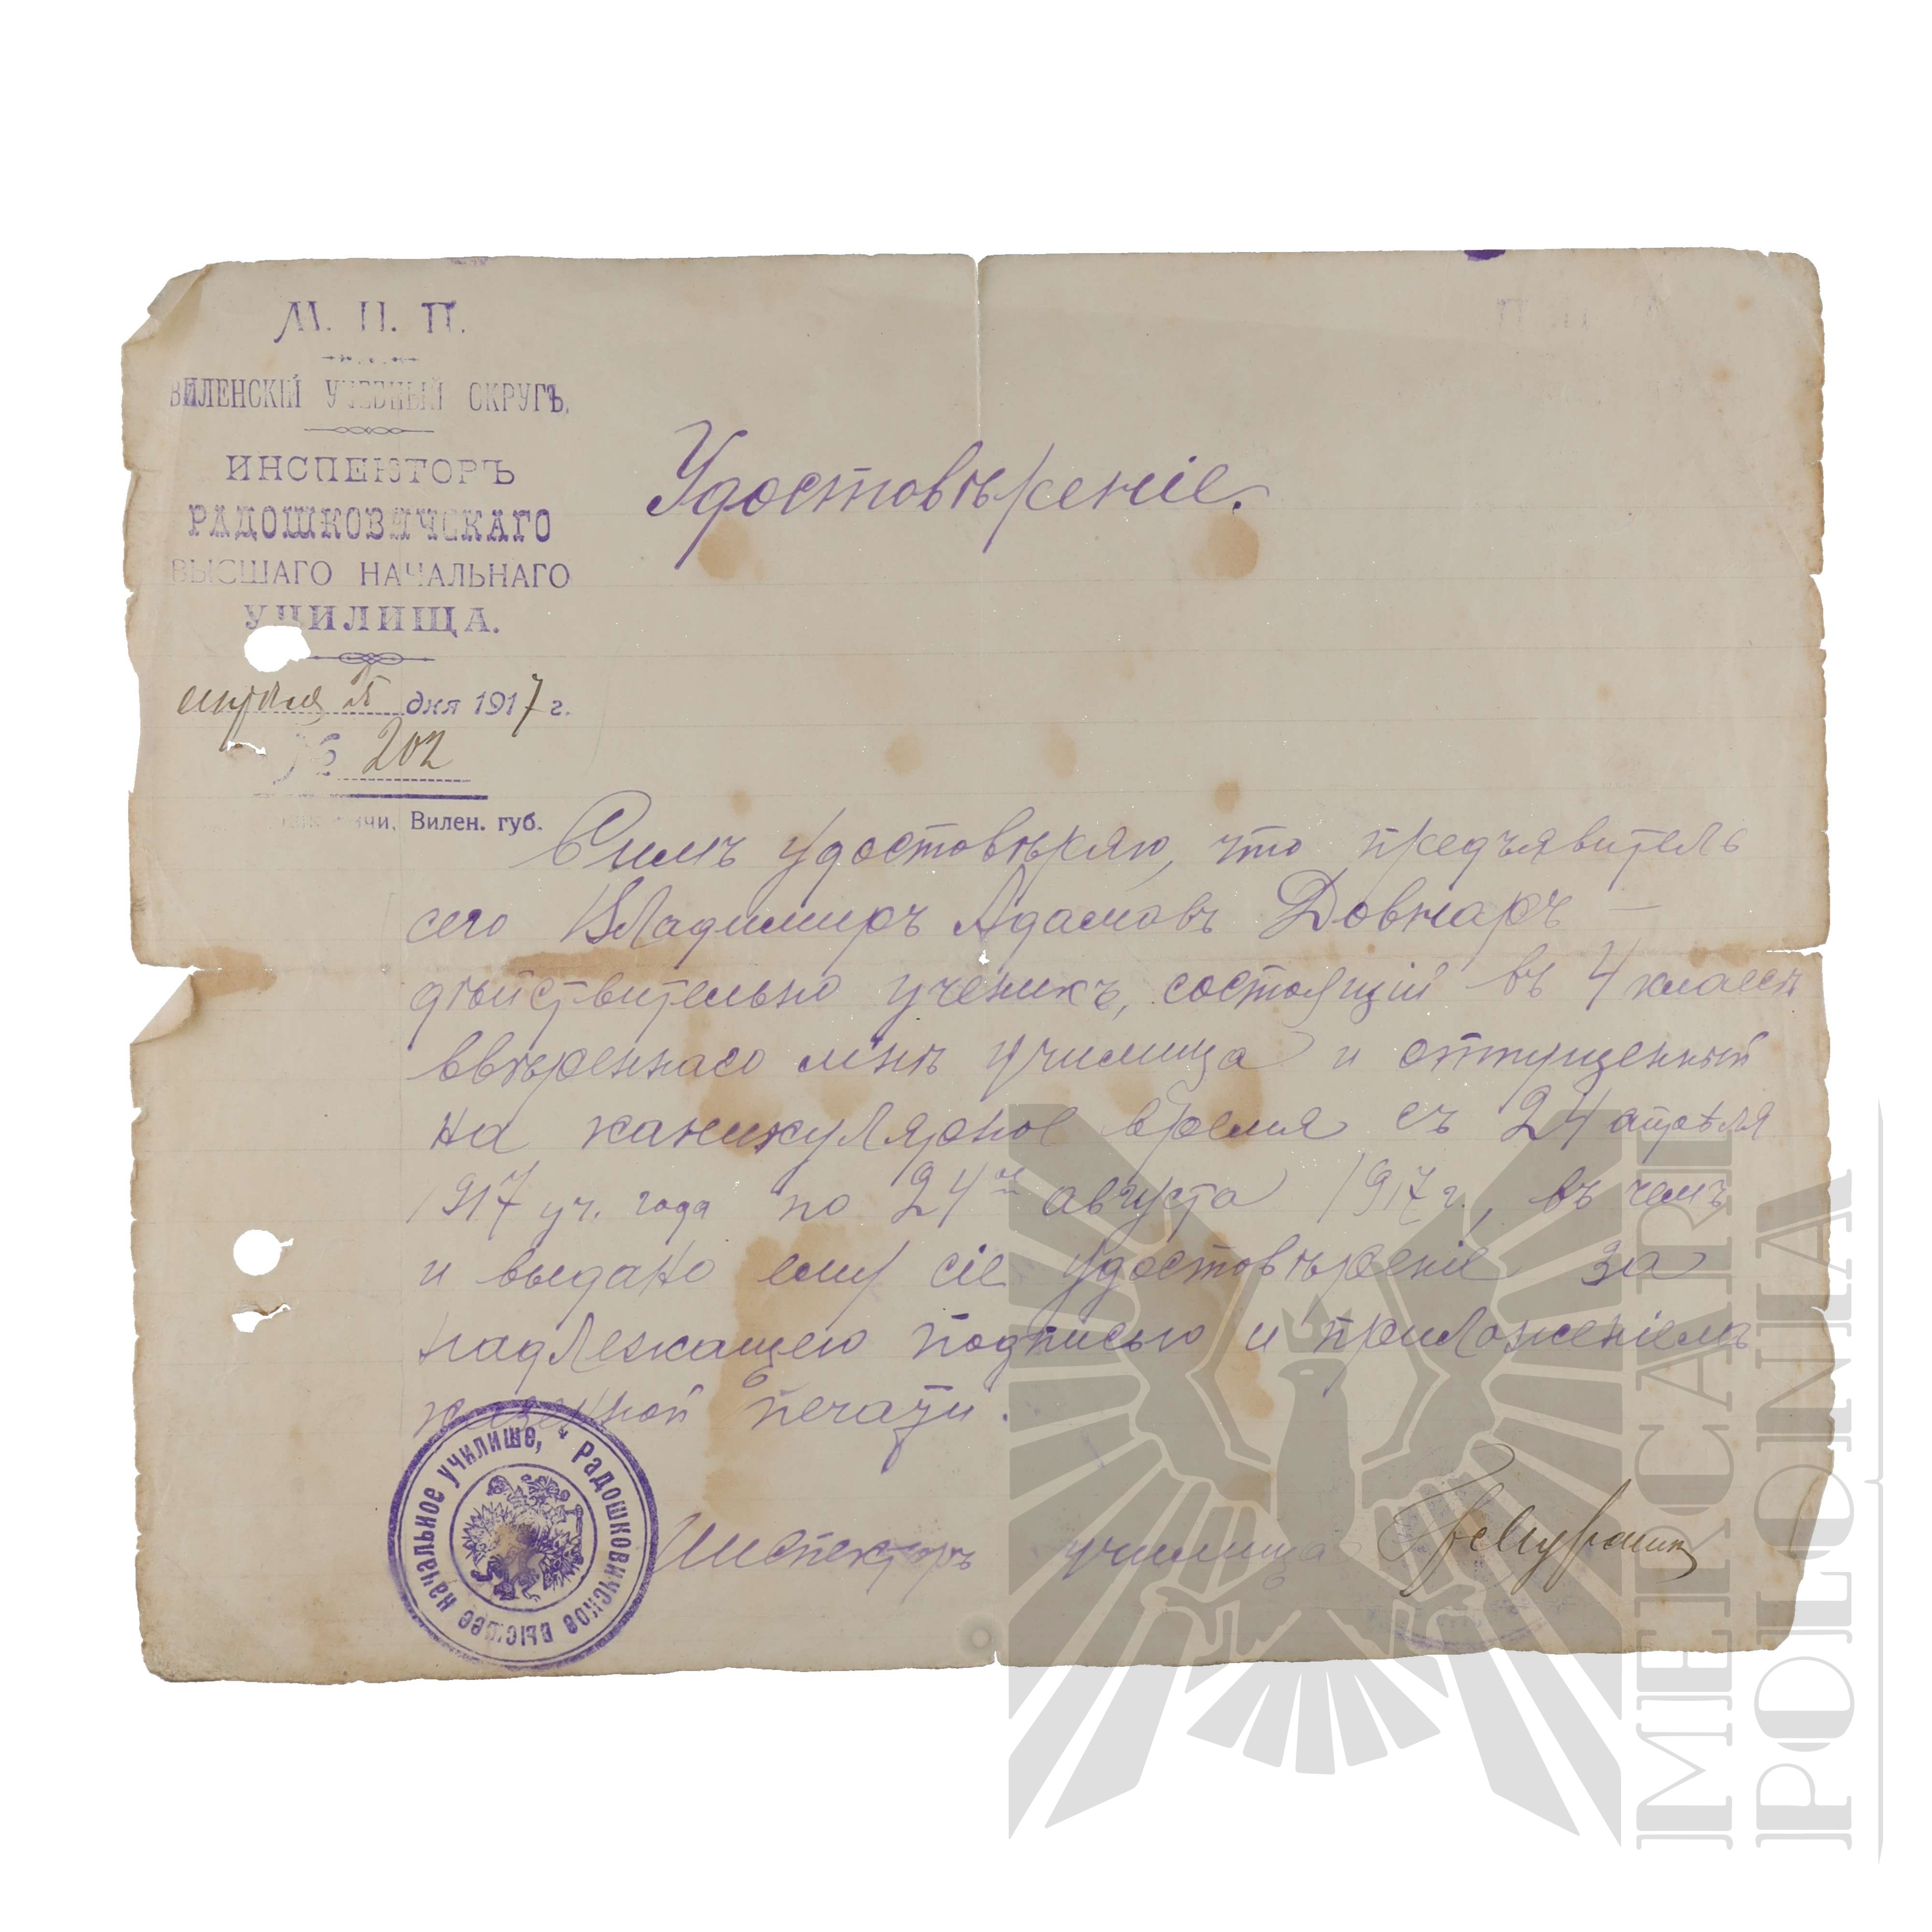 М. Н. П.
ВИЛЕНСКІЙ УЧЕБНЫЙ ОКРУГЪ.
ИНСПЕКТОРЪ
РАДОШКОВИЧСКАГО
ВЫСШАГО НАЧАЛЬНАГО
УЧИЛИЩА.
апрѣля дня 1917 г.
№ 202
Вилен. губ.
Удостовѣреніе.
Симъ удостовѣряю, что предъявитель
сего Владимиръ Адамовъ Довнаръ —
дѣйствительно ученикъ, состоящій въ 4 классѣ
ввѣреннаго мнѣ училища и отпущенный
на каникулярное время съ 24 апрѣля
1917 уч. года по 24 августа 1917 г., въ чемъ
и выдано ему сіе удостовѣреніе за
надлежащею подписью и приложеніемъ
казенной печати.
Инспекторъ училища
Радошковичское высшее начальное училище,
IMERCARI
POLONIA